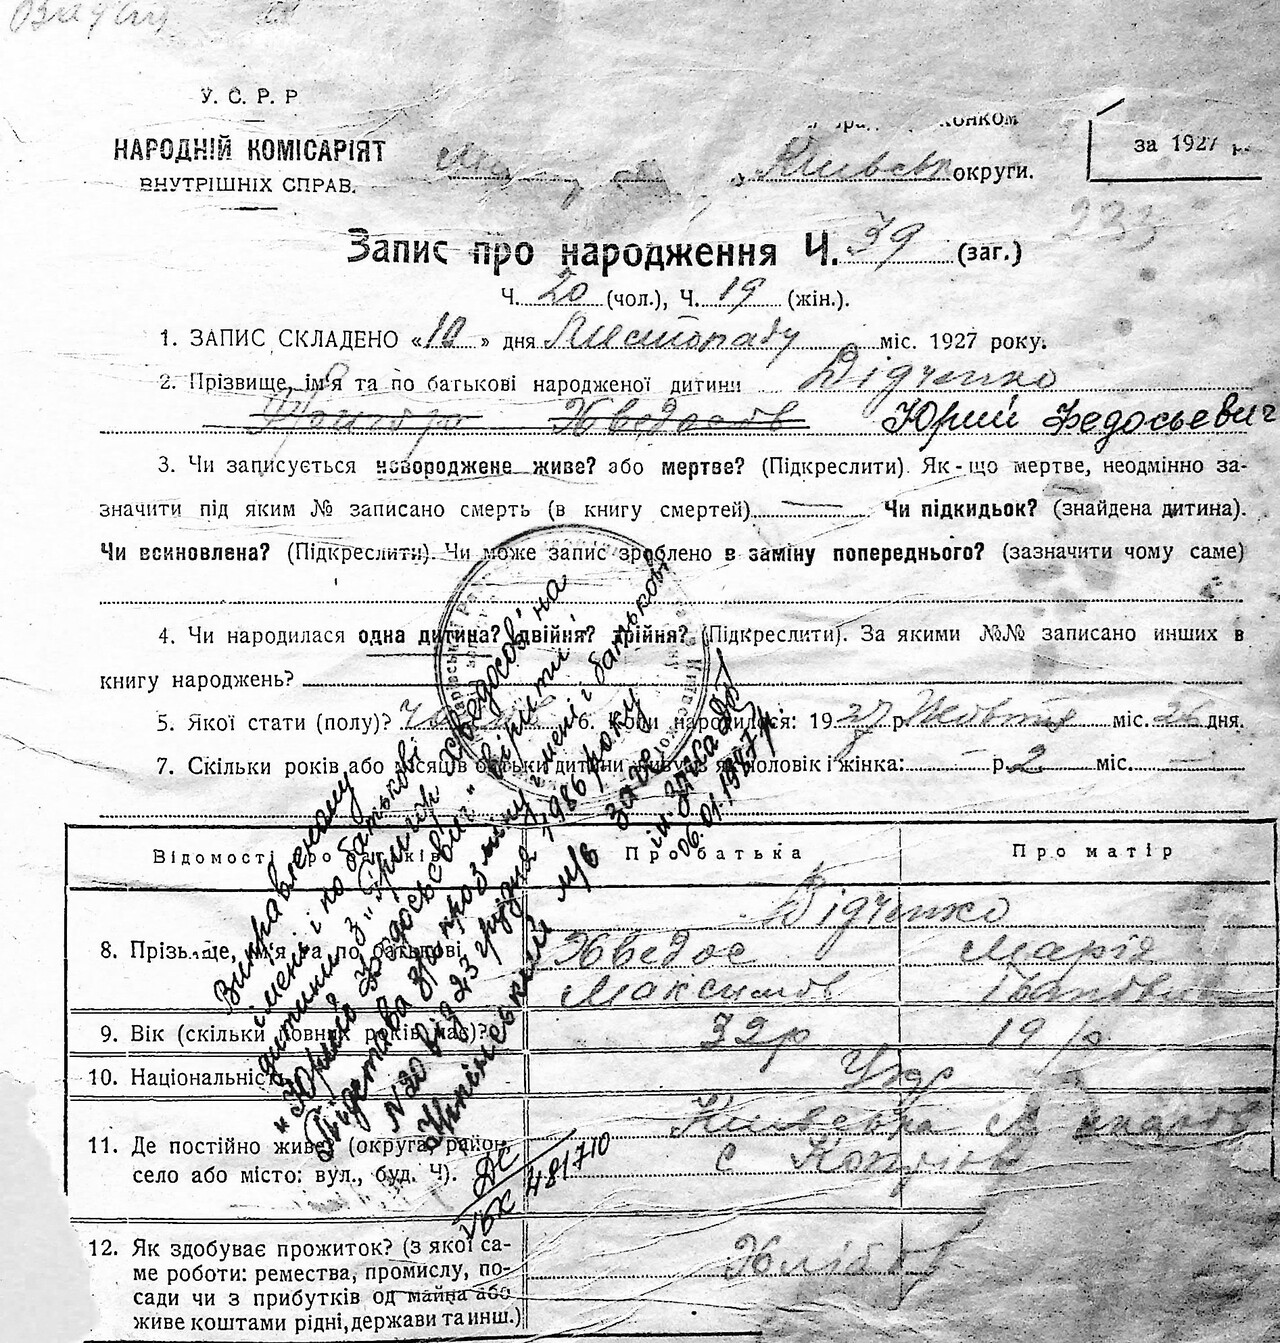 У. С. Р. Р
НАРОДНІЙ КОМІСАРІЯТ
ВНУТРІШНІХ СПРАВ.
округи.
за 1927 р.
233
Запис про народження Ч. 39 (заг.)
Ч. 20 (чол.), Ч. 19 (жін.).
1. ЗАПИС СКЛАДЕНО «10» дня Листопаду міс. 1927 року.
2. Прізвище, ім'я та по батькові народженої дитини Дідченко
Хведосів Юрий Федосьевич
3. Чи записується новороджене живе? або мертве? (Підкреслити). Як-що мертве, неодмінно за-
значити під яким № записано смерть (в книгу смертей) Чи підкидьок? (знайдена дитина).
Чи всиновлена? (Підкреслити). Чи може запис зроблено в заміну попереднього? (зазначити чому саме)
4. Чи народилася одна дитина? двійня? трійня? (Підкреслити). За якими №№ записано инших в
книгу народжень?
5. Якої стати (полу)? 6. Коли народилося: 1927 р. Жовтня міс. дня.
7. Скільки років або місяців батьки дитини живуть як чоловік і жінка: р. 2 міс.
Виправленому
імені і по батькові
дитини з "Григор Хведосов" на
"Юрий Федосьевич" вірити
Підстава про зміну імені і батькові
N20 від 23 грудня 1986 року
Ірпінський м/в загс
06.01.1947 р.
481710
Відомості про батьків
Про батька
Про матір
Дідченко
8. Прізвище, ім'я та по батькові Хведос Марія
Максимов
9. Вік (скільки повних років має)? 32р 19 р
10. Національність Укр
11. Де постійно живе (округа, район,
село або місто: вул., буд. Ч).
с
12. Як здобуває прожиток? (з якої са-
ме роботи: ремества, промислу, по-
сади чи з прибутків од майна або
живе коштами рідні, держави та инш.)
Хлібор